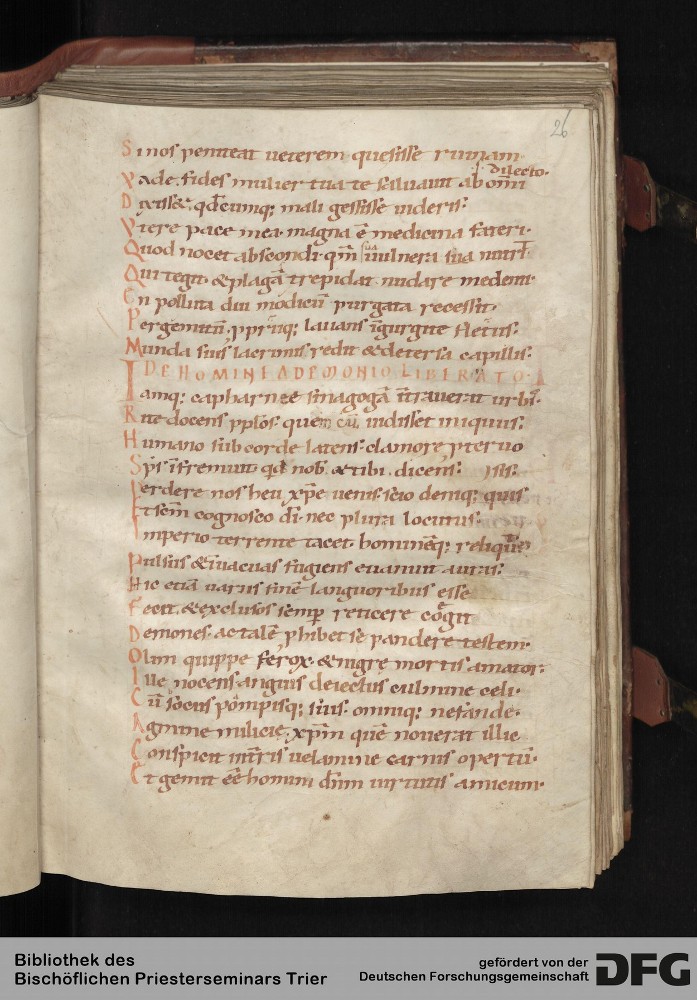 26
Si nos peniteat ueterem quesisse ruinam
Vade fides mulier tua te saluauit ab om̄i
dilecto.
Dixisset qđcumq; mali gessisse uideris:
Viuere pace mea. magna ē medicina fateri.
Quod nocet abscondi. qm̄ sua uulnera
Qui tegit. & plagā trepidat nudare medenti.
En polluta diu modicū purgata recessit.
Per gemitū, ppriūq; lauans īgurgite fletus:
Munda suis lacrimis redit & detersa capillis:
DE HOMINE A DEMONIO LIBERATO
Iamq; capharnee sinagogā īntrauerat urbis.
Rite docens pplōs. quem cū uidisset iniquus:
Humano sub corde latens. clamore pteruo
Sps̄ īfremuit qđ nob̄ & tibi. dicens: ihs:
Perdere nos heu xp̄e uenis. scio deniq; quis
Et sem̄ cognosco dī. nec plura locutus:
Imperio terrente tacet. hominēq; reliquit
Pulsus & īuacuas fugiens euanuit auras:
Hic etiā uarus sinē languoribus esse
Fecit. & exclusos semp reticere coegit
Demones. ac talē phibet se pandere testem.
Olim quippe ferox. & nigre mortis amator:
Ille nocens anguis deiectus culmine celi.
Cū sociis pompisq; suis. omniq; nefande.
Agmine milicie. xpm̄ quē nouerat illic
Conspicit int̄ris uelamine carnis opertū.
Et gemit eē homini dn̄m uirtutis amicum.
Bibliothek des
Bischöflichen Priesterseminars Trier
gefördert von der
Deutschen Forschungsgemeinschaft
DFG